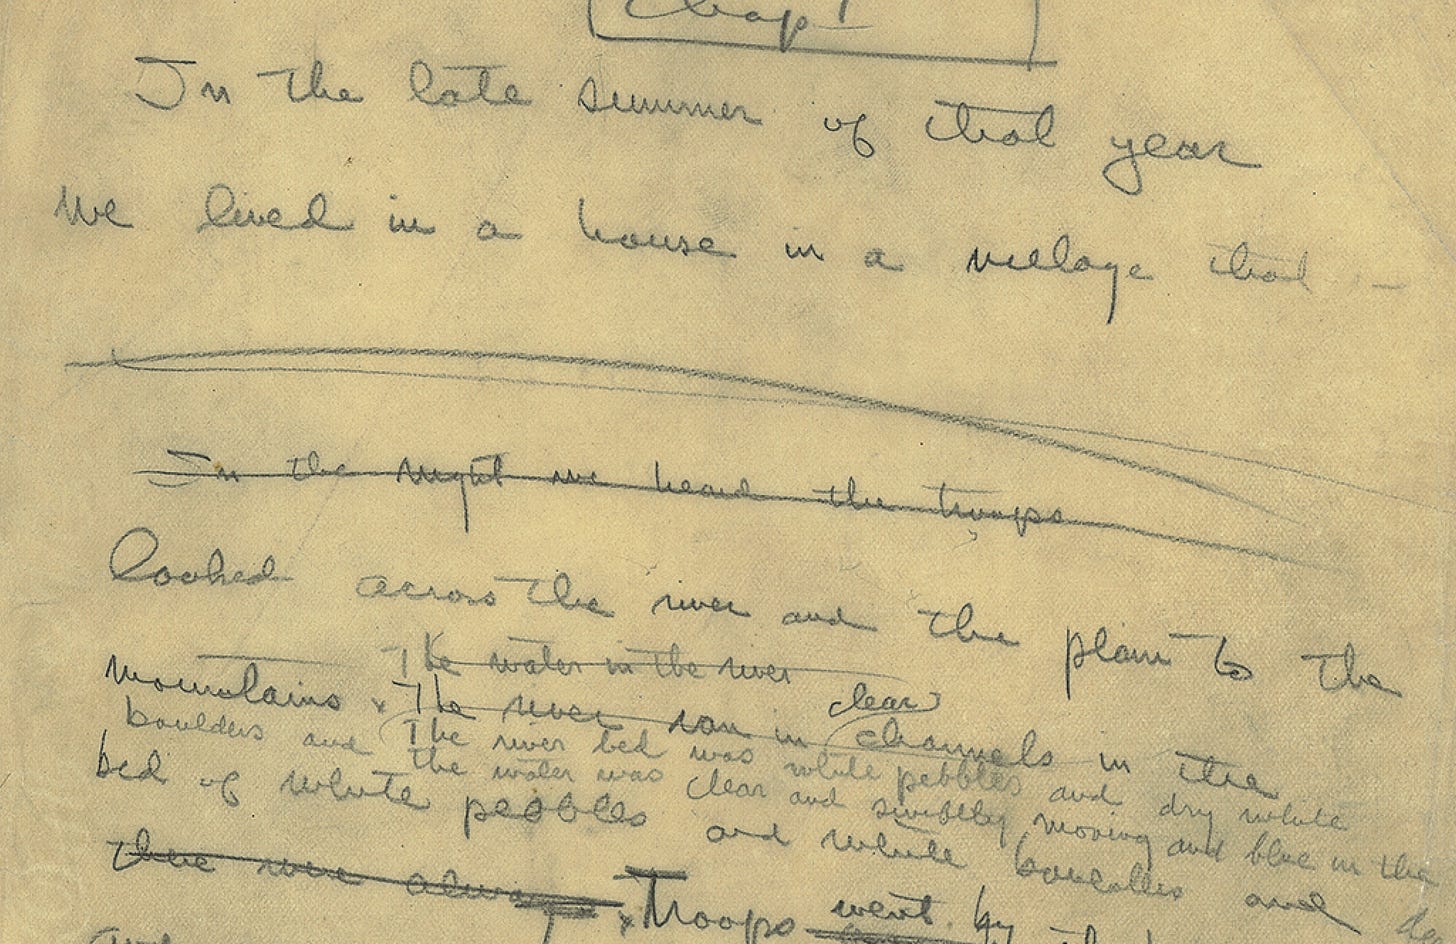 Chap I
In the late summer of that year
we lived in a house in a village that
In the night we heard the troops
looked across the river and the plain to the
The water in the river
mountains. The river ran in clear channels in the
boulders and The river bed was white pebbles and dry white
the water was clear and swiftly moving and blue in the
bed of white pebbles and white boulders and
there were always Troops went by the